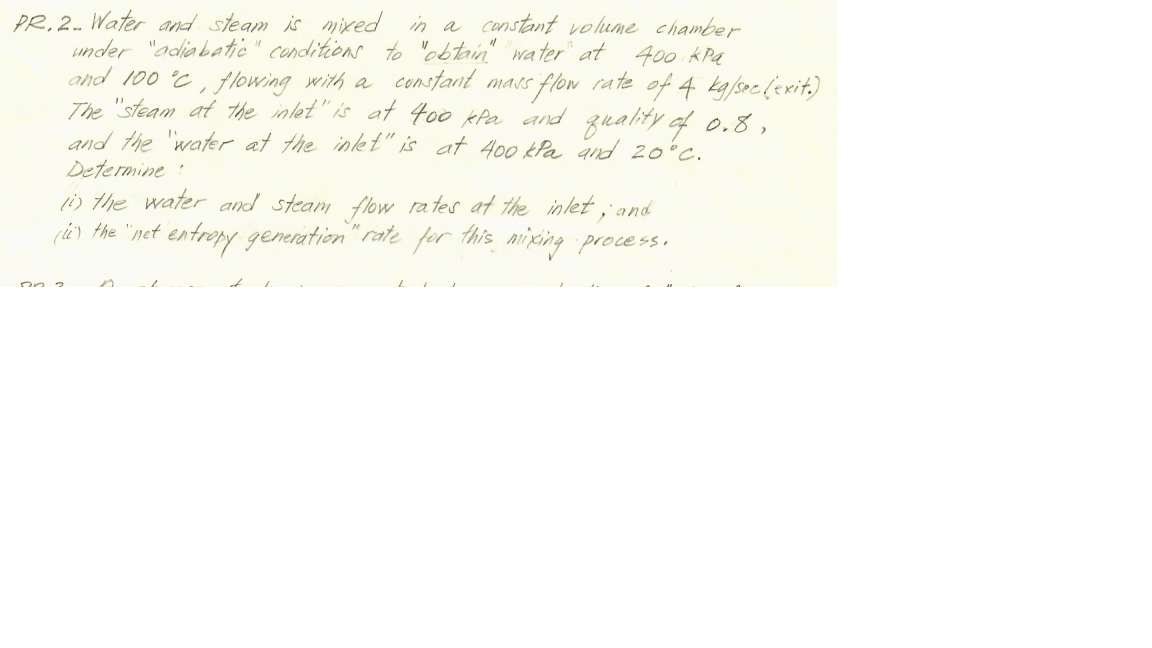 PR.2- Water and steam is mixed in a constant volume chamber
under "adiabatic" conditions to "obtain" water at 400 kPa
and 100 °C, flowing with a constant mass flow rate of 4 kg/sec (exit.)
The "steam at the inlet" is at 400 kPa and quality of 0.8,
and the "water at the inlet" is at 400 kPa and 20°C.
Determine :
(i) the water and steam flow rates at the inlet ; and
(ii) the "net entropy generation" rate for this mixing process.